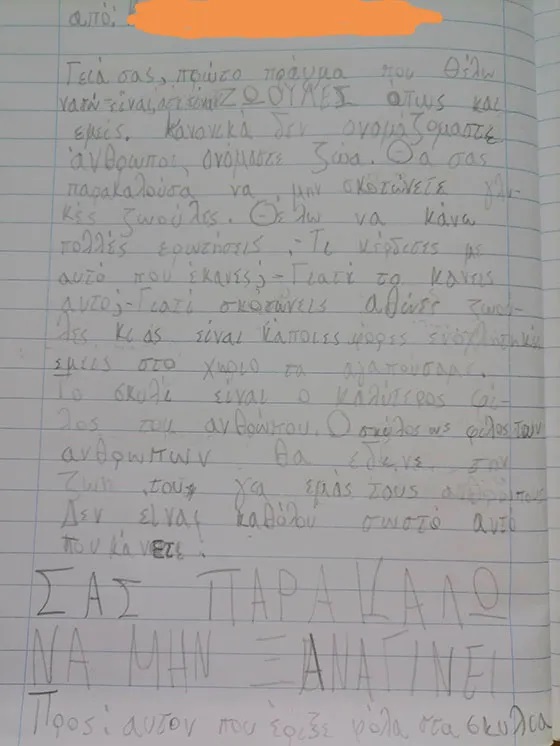 από:
Γειά σας, πρώτο πράγμα που θέλω
να πω είναι, ότι είναι ΖΩΟΥΛΕΣ όπως και
εμείς. Κανονικά δεν ονομαζόμαστε
άνθρωποι, ονόμαστε ζώα. Θα σας
παρακαλούσα να μην σκοτώνετε γλυ-
κές ζωούλες. Θέλω να κάνω
πολλές ερωτήσεις. -Τι κέρδισες με
αυτό που έκανες; -Γιατί το κάνεις
αυτό; -Γιατί σκοτώνεις αθώες ζωού-
λες κι ας είναι κάποιες φορες ενοχλητικά
εμείς στο χωριό τα αγαπούσαμε.
Το σκυλί είναι ο καλύτερος φί-
λος του ανθρώπου. Ο σκύλος ως φίλος των
ανθρώπων θα έδινε την
ζωή του για εμάς τους ανθρώπους
Δεν είναι καθόλου σωστό αυτό
που κάνετε!
ΣΑΣ ΠΑΡΑΚΑΛΩ
ΝΑ ΜΗΝ ΞΑΝΑΓΙΝΕΙ
Προς: αυτον που έριξε φόλα στα σκυλια